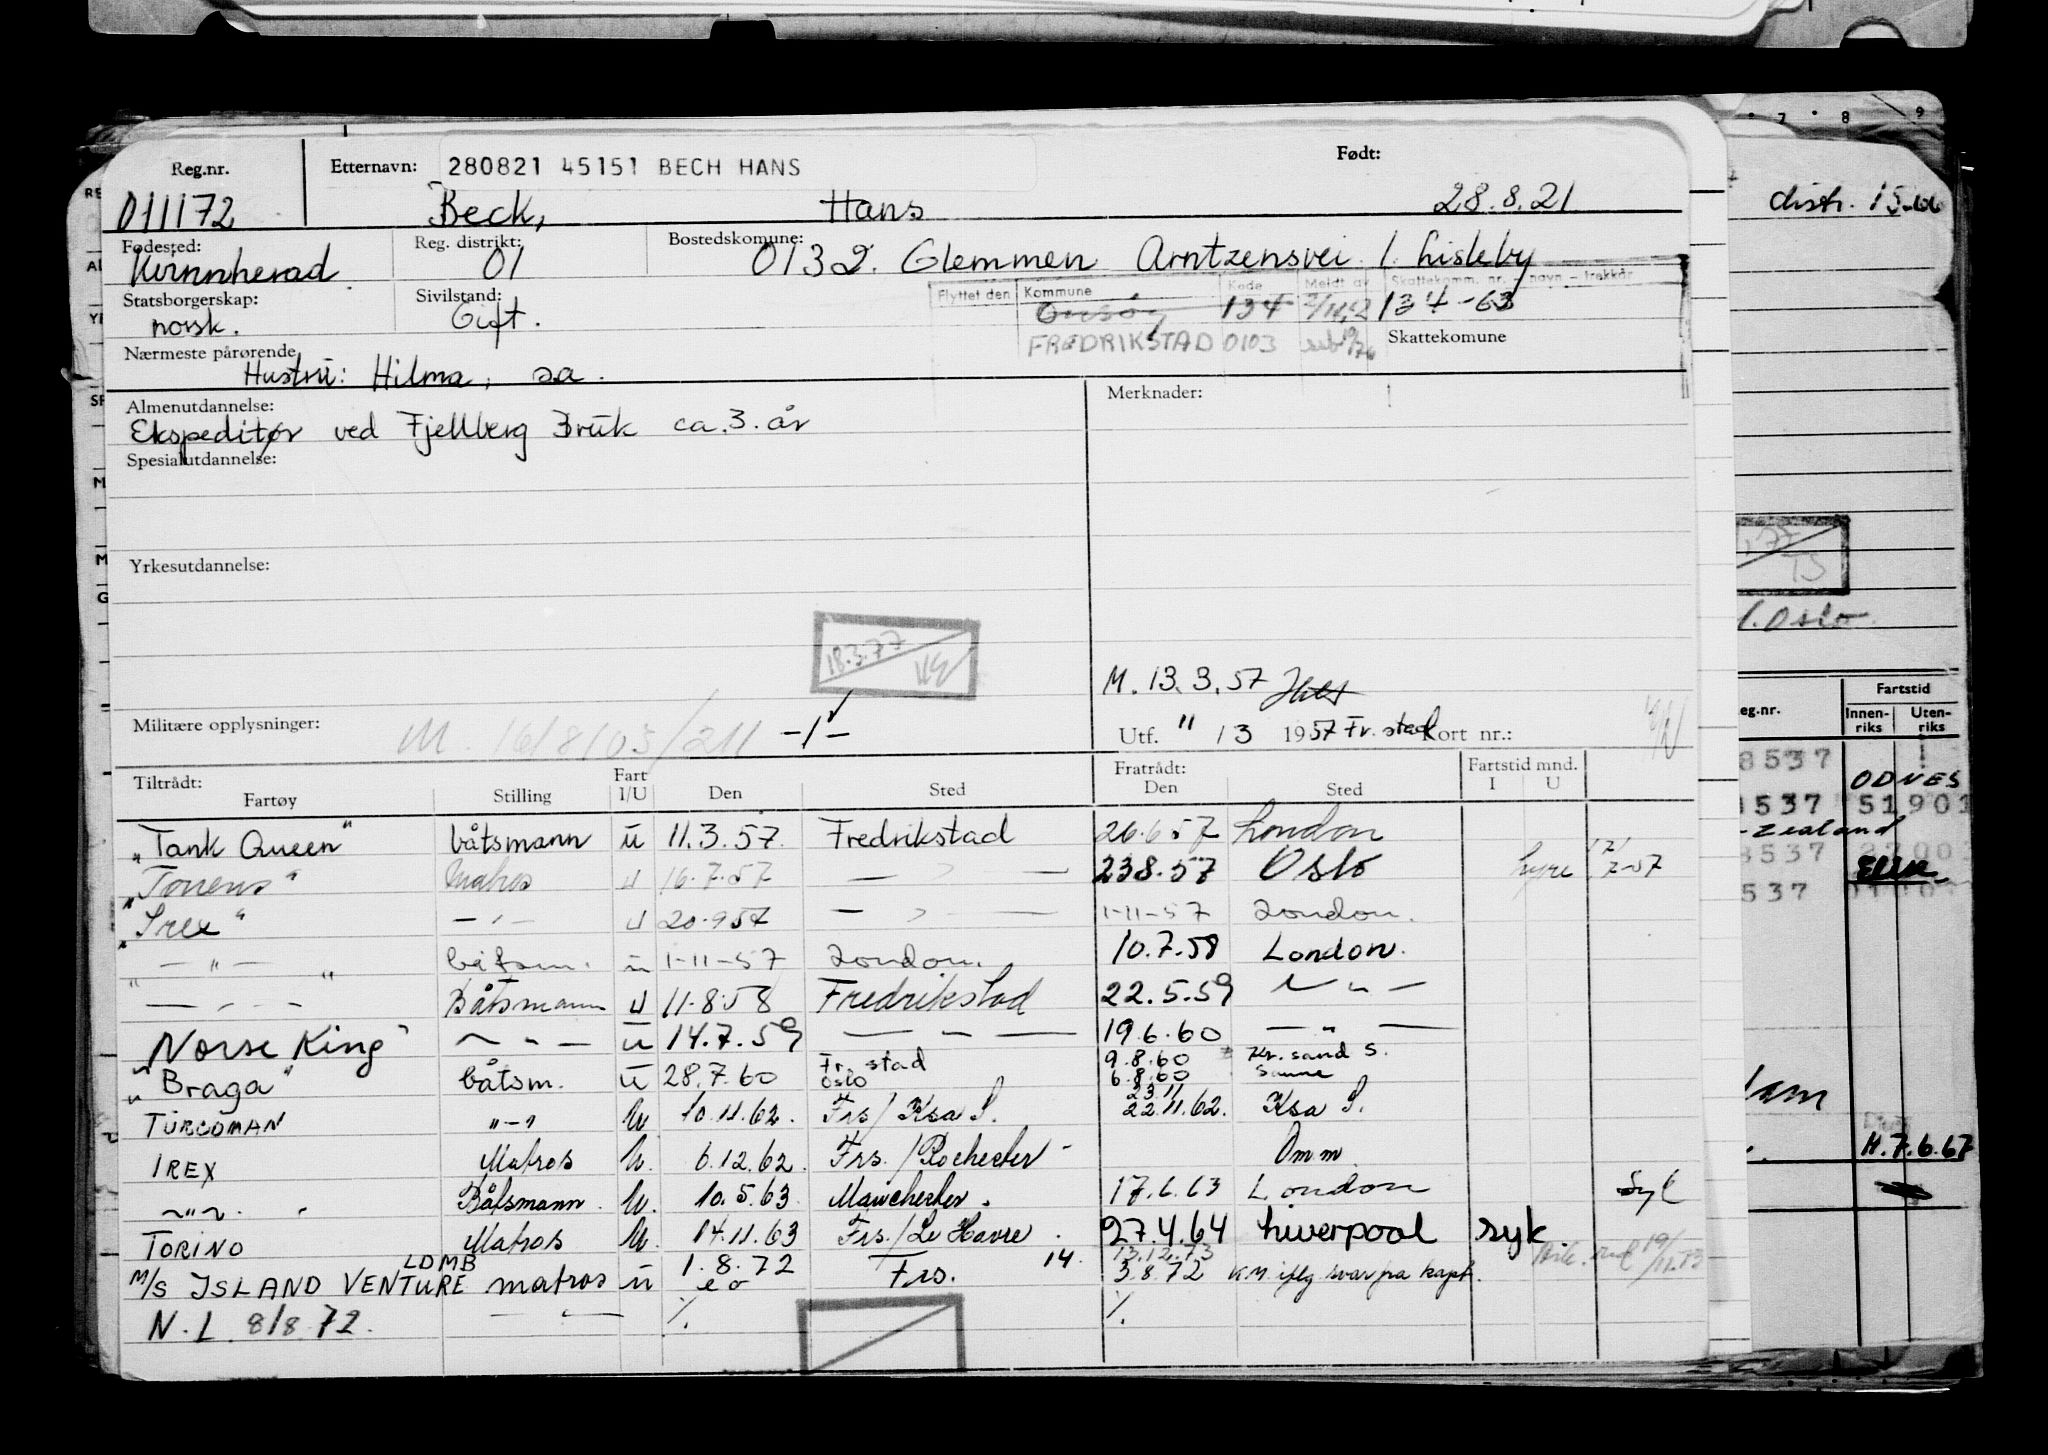 Reg.nr. Etternavn: 280821 45151 BECH HANS Født:
011172 Beck, Hans 28.8.21
Fødested: Reg. distrikt: Bostedskomune:
Kvinnherad 01 0132. Glemmen Arntzensvei 1. Lisleby
Statsborgerskap: Sivilstand: Flyttet den Kommune Kode Meldt av Skattekomm. nr. navn - trekkår
norsk. Gift. Onsøy 134 134-63
FREDRIKSTAD 0103 Skattekomune
Nærmeste pårørende
Hustru: Hilma, sa.
Almenutdannelse: Merknader:
Ekspeditør ved Fjellberg Bruk ca. 3. år
Spesialutdannelse:
Yrkesutdannelse:
18.3.77
M. 13.3.57
Militære opplysninger: M. 16/8/03/211 -/- Utf. " 13 1957 Fr.stad Kort nr.:
Tiltrådt: Fart Fratrådt: Fartstid mnd.
Fartøy Stilling I/U Den Sted Den Sted I U
"Tank Queen" båtsmann u 11.3.57. Fredrikstad 26.6.57 London
"Torrens" Matros u 16.7.57 — " — 23.8.57 Oslo hyre 7-57
"Irex" — " — u 20.9.57 — " — 1-11-57 London.
" — " — " båtsm. u 1-11-57 London. 10.7.58 London.
— " — Båtsmann u 11.8.58 Fredrikstad 22.5.59 — " —
"Norse King" — " — u 14.7.59 — " — 19.6.60 — " —
"Braga" båtsm. u 28.7.60 Fr.stad 9.8.60 Kr.sand S.
Oslo 6.8.60 Samme
23.11
TURCOMAN " - " U 10.11.62. Frs/Ksa S. 22.11.62. Ksa S.
IREX Matros U. 6.12.62. Frs./Rochester - Omm
— " — Båtsmann U. 10.5.63. Manchester. 17.6.63 London Syk
TORINO Matros U. 14.11.63 Frs./Le Havre. 27.4.64 Liverpool syk.
LDMB 1.8.72 14. 13.12.73 19/11.73
M/S ISLAND VENTURE matros u eo Frs. 3.8.72 KM iflg svar fra kapt.
N.L. 8/8.72. — " — ./. ./.
7 8 9
distr. 15
TS
1. Oslo
Fartstid
eg.nr. Innen-riks Uten-riks
8537
ODNES
537 51901
-Zealand
8537
537
H. 7.6.67